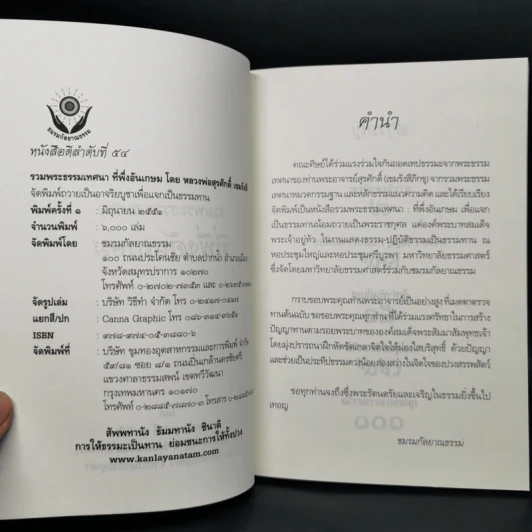 ชมรมกัลยาณธรรม
หนังสือดีลำดับที่ ๕๔
รวมพระธรรมเทศนา ที่พึ่งอันเกษม โดย หลวงพ่อสุรศักดิ์ เขมรังสี
จัดพิมพ์ถวายเป็นอาจริยบูชาเพื่อแจกเป็นธรรมทาน
พิมพ์ครั้งที่ ๑ : มิถุนายน ๒๕๕๑
จำนวนพิมพ์ : ๖,๐๐๐ เล่ม
จัดพิมพ์โดย : ชมรมกัลยาณธรรม
๑๐๐ ถนนประโคนชัย ตำบลปากน้ำ อำเภอเมือง
จังหวัดสมุทรปราการ ๑๐๒๗๐
โทรศัพท์
จัดรูปเล่ม : บริษัท วิธีทำ จำกัด โทร
แยกสี/ปก : Canna Graphic โทร
ISBN :
จัดพิมพ์ที่ : บริษัท ขุมทองอุตสาหกรรมและการพิมพ์ จำกัด
๕๙/๘๑ ซอย ๗/๑ ถนนปิ่นเกล้านครชัยศรี
แขวงศาลาธรรมสพน์ เขตทวีวัฒนา
กรุงเทพมหานคร ๑๐๑๗๐
โทรศัพท์
สัพพทานัง ธัมมทานัง ชินาติ
การให้ธรรมะเป็นทาน ย่อมชนะการให้ทั้งปวง
www.kanlayanatam.com
คำนำ
คณะศิษย์ได้ร่วมแรงร่วมใจกันถอดเทปธรรมะจากพระธรรม
เทศนาของท่านพระอาจารย์สุรศักดิ์ (เขมรังสีภิกขุ) จากรวมพระธรรม
เทศนาหมวดกรรมฐาน และหลักธรรมแนวความคิด และได้เรียบเรียง
จัดพิมพ์เป็นหนังสือรวมพระธรรมเทศนา : ที่พึ่งอันเกษม เพื่อแจก
เป็นธรรมทานน้อมถวายเป็นพระราชกุศล แด่องค์พระบาทสมเด็จ
พระเจ้าอยู่หัว ในงานแสดงธรรม-ปฏิบัติธรรมเป็นธรรมทาน ณ
หอประชุมใหญ่และหอประชุมศรีบูรพา มหาวิทยาลัยธรรมศาสตร์
ซึ่งจัดโดยมหาวิทยาลัยธรรมศาสตร์ร่วมกับชมรมกัลยาณธรรม
กราบขอบพระคุณท่านพระอาจารย์เป็นอย่างสูงที่เมตตาตรวจ
ทานต้นฉบับ ขอขอบพระคุณทุกท่าน ที่ได้ร่วมแรงศรัทธาในการสร้าง
ปัญญาทานตามรอยพระบาทขององค์สมเด็จพระสัมมาสัมพุทธเจ้า
โดยมุ่งปรารถนาฝึกหัดขัดเกลาจิตใจให้ผ่องใสบริสุทธิ์ ด้วยปัญญา
และช่วยเป็นประทีปดวงน้อยส่องสว่างในจิตใจของปวงสรรพสัตว์
ขอทุกท่านจงถึงซึ่งพระรัตนตรัยและเจริญในธรรมยิ่งขึ้นไป
เทอญ
ชมรมกัลยาณธรรม